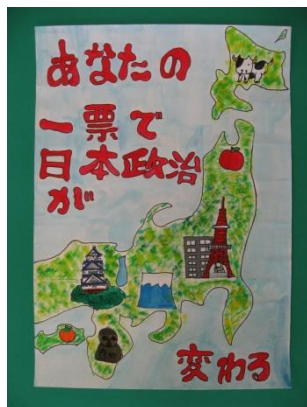 あなたの
一票で
日本政治
が
変わる